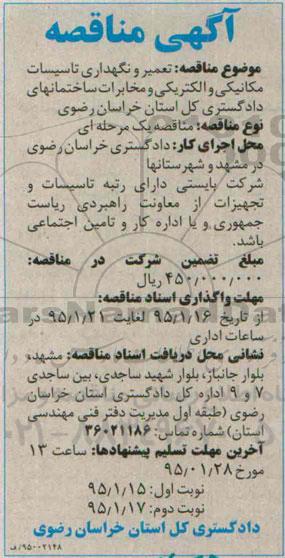 آگهی مناقصه
موضوع مناقصه: تعمیر و نگهداری تاسیسات
مکانیکی و الکتریکی و مخابرات ساختمانهای
دادگستری کل استان خراسان رضوی
نوع مناقصه: مناقصه یک مرحله ای
محل اجرای کار: دادگستری خراسان رضوی
در مشهد و شهرستانها
شرکت بایستی دارای رتبه تاسیسات و
تجهیزات از معاونت راهبردی ریاست
جمهوری و یا اداره کار و تامین اجتماعی
باشد.
مبلغ تضمین شرکت در مناقصه:
۴۵۰,۰۰۰,۰۰۰ ریال
مهلت واگذاری اسناد مناقصه:
از تاریخ ۹۵/۱/۱۶ لغایت ۹۵/۱/۲۱ در
ساعات اداری
نشانی محل دریافت اسناد مناقصه: مشهد،
بلوار جانباز، بلوار شهید ساجدی، بین ساجدی
۷ و ۹ اداره کل دادگستری استان خراسان
رضوی (طبقه اول مدیریت دفتر فنی مهندسی
استان) شماره تماس: ۳۶۰۲۱۱۸۶
آخرین مهلت تسلیم پیشنهادها: ساعت ۱۳
مورخ ۹۵/۰۱/۲۸
نوبت اول: ۹۵/۱/۱۵
نوبت دوم: ۹۵/۱/۱۷
دادگستری کل استان خراسان رضوی
۹۵۰۰۲۱۴۸/ف